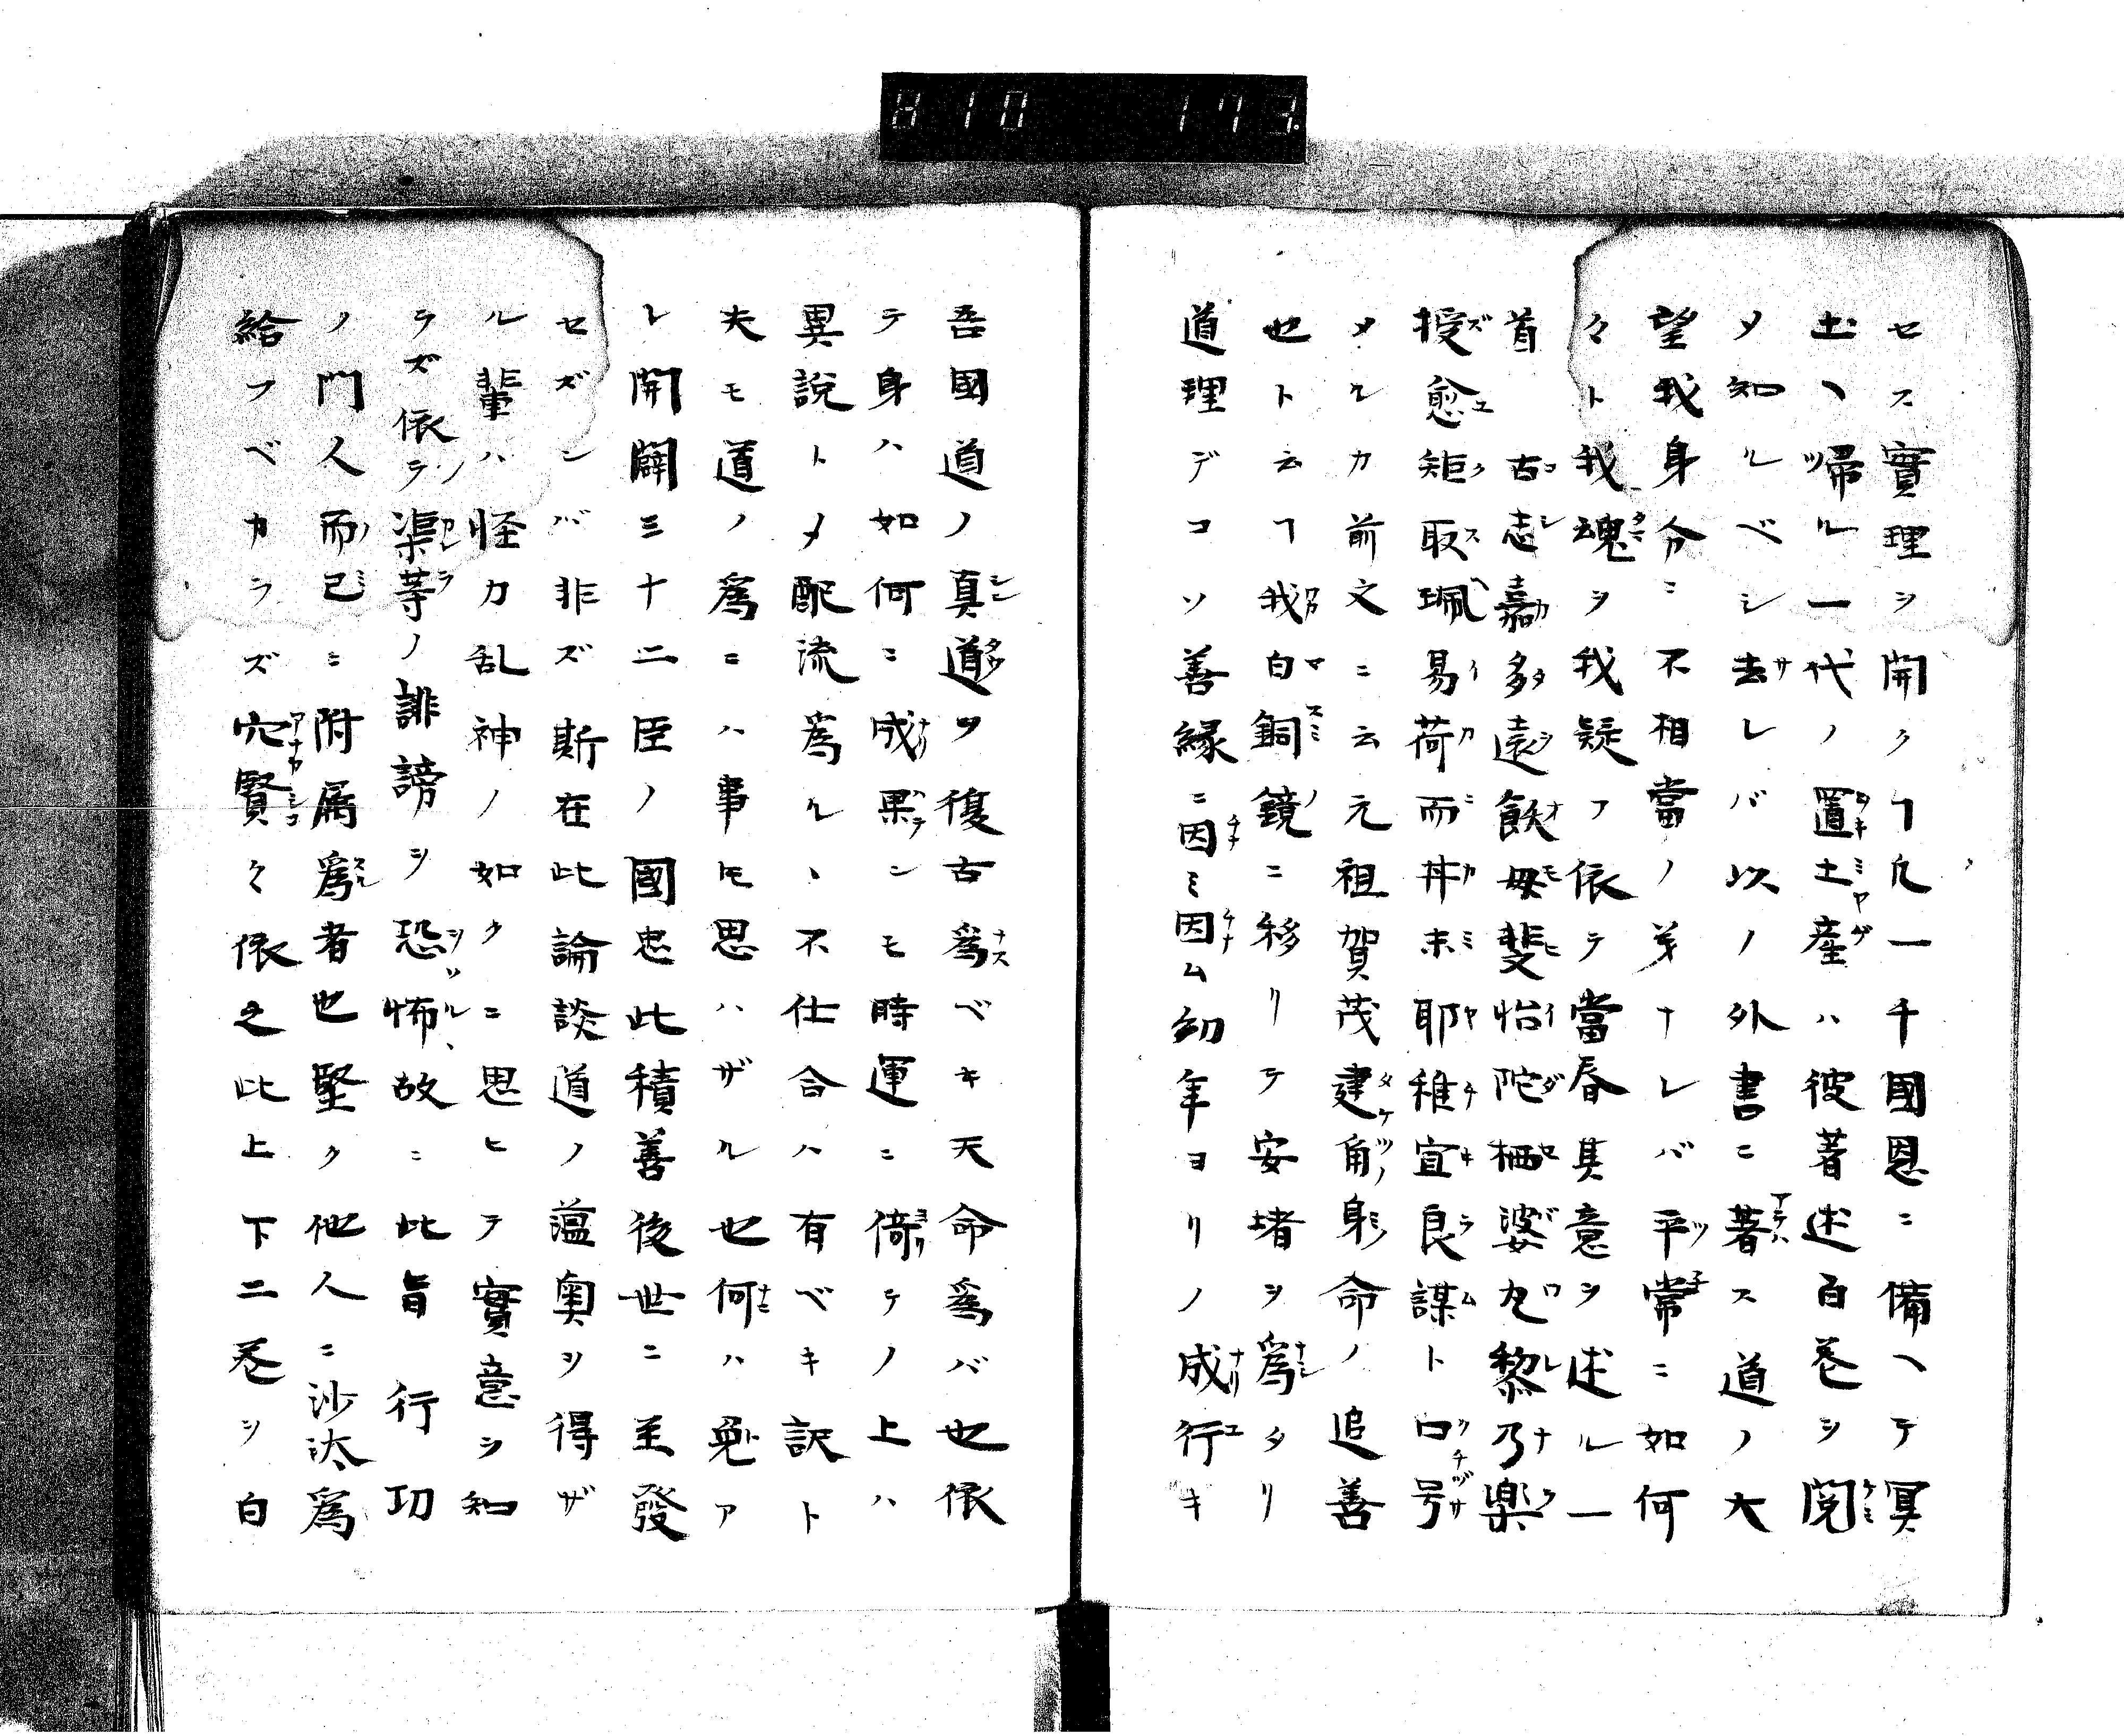 810 173.
セス實理ヲ開クヿ凢一千國恩ニ備ヘテ冥
土ヘ帰ル一代ノ置土産ハ彼著述百巻ヲ閲
メ知ルベシ去レバ以ノ外書ニ著ス道ノ大
望我身分ニ不相當ノ㐧ナレバ平常ニ如何
々ト我魂ヲ我疑フ依テ當春其意ヲ述ル一
首 古志嘉多遠飲毋斐怡陀栖婆丸黎乃樂
授愈矩取珮易荷而丼未耶稚宜良謀ト口号
メルカ前文ニ云元祖賀茂建角身命ノ追善
也ト云ヿ我白銅鏡ニ移リテ安堵ヲ爲タリ
道理デコソ善縁ニ因ミ因ム幼年ヨリノ成行キ
吾國道ノ真道ヲ復古爲ベキ天命爲バ也依
テ身ハ如何ニ成果ンモ時運ニ倚テノ上ハ
異説トメ配流爲ルヽ不仕合ハ有ベキ訳ト
夫モ道ノ爲ニハ事氏思ハザル也何ハ兎ア
レ開闢三十二臣ノ國忠此積善後世ニ至發
セズンバ非ズ斯在此論談道ノ薀奥ヲ得ザ
ル輩ハ怪力乱神ノ如クニ思ヒテ實意ヲ知
ラズ依テ渠等ノ誹謗ヲ恐怖故ニ此旨行功
ノ門人而已ニ附属爲者也堅ク他人ニ沙汰爲
給フベカラズ穴賢々依之此上下二巻ヲ白